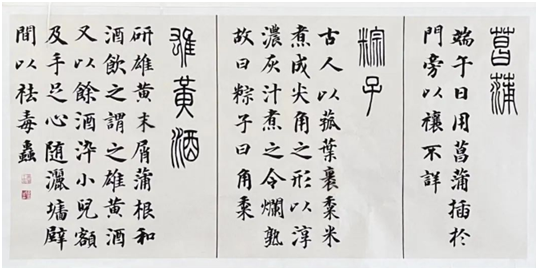 菖蒲
端午日用菖蒲插於
門旁以禳不詳
粽子
古人以菰葉裹黍米
煮成尖角之形以淳
濃灰汁煮之令爛熟
故曰粽子曰角黍
雄黃酒
研雄黃末屑蒲根和
酒飲之謂之雄黃酒
又以餘酒染小兒額
及手足心隨灑墻壁
間以祛毒蟲